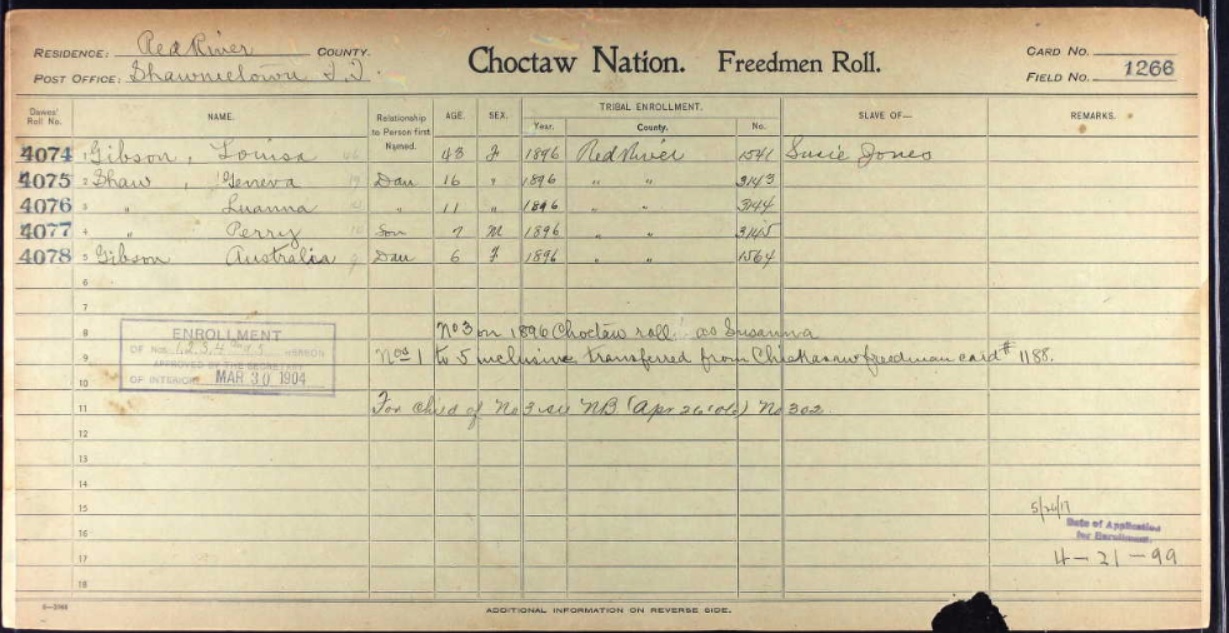 RESIDENCE: Red River COUNTY.
POST OFFICE: Shawneetown I.T.
Choctaw Nation. Freedmen Roll.
CARD NO.
FIELD NO. 1266
Dawes' Roll No. NAME. Relationship to Person first Named. AGE. SEX. TRIBAL ENROLLMENT. Year. County. No. SLAVE OF— REMARKS.
4074 1 Gibson, Louisa 43 F 1896 Red River 1541 Susie Jones
4075 2 Shaw, Geneva Dau 16 " 1896 " " 3143
4076 3 " Luanna " 11 " 1896 " " 3144
4077 4 " Perry Son 7 M 1896 " " 3145
4078 5 Gibson Australia Dau 6 F 1896 " " 1564
6
7
8 No 3 on 1896 Choctaw roll as Susanna
ENROLLMENT
OF NOS. 1,2,3,4 and 5 HEREON
APPROVED BY THE SECRETARY
OF INTERIOR MAR 30 1904
9 Nos 1 to 5 inclusive transferred from Chickasaw freedman card # 1188.
10
11 For child of No 3 see NB (Apr 26 '06) No 302
12
13
14
15
5/24/17
16
Date of Application
for Enrollment.
17
4-21-99
18
ADDITIONAL INFORMATION ON REVERSE SIDE.